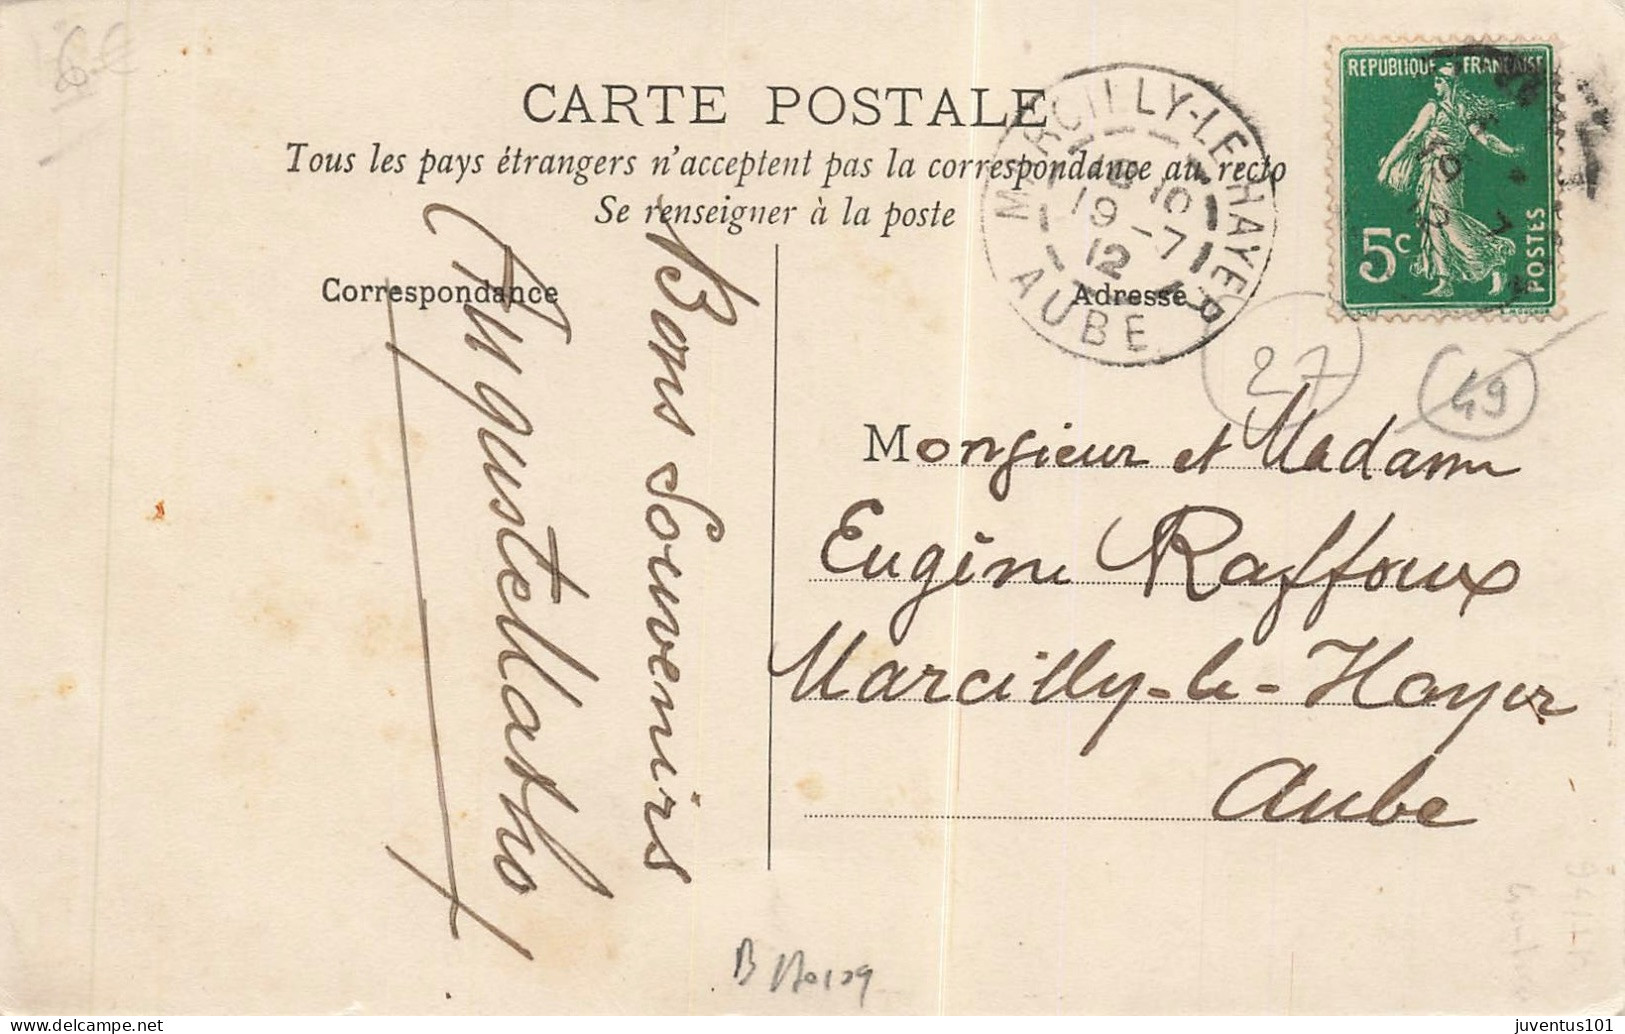 6 €
CARTE POSTALE
Tous les pays étrangers n'acceptent pas la correspondance au recto
Se renseigner à la poste
Correspondance
Adresse
MARCILLY-LE-HAYER
10
19-7
12
AUBE
REPUBLIQUE FRANÇAISE
5c
POSTES
27
49
Bons Souvenirs
Monsieur et Madame
Eugène Raffoux
Marcilly-le-Hayer
Aube
juventus101